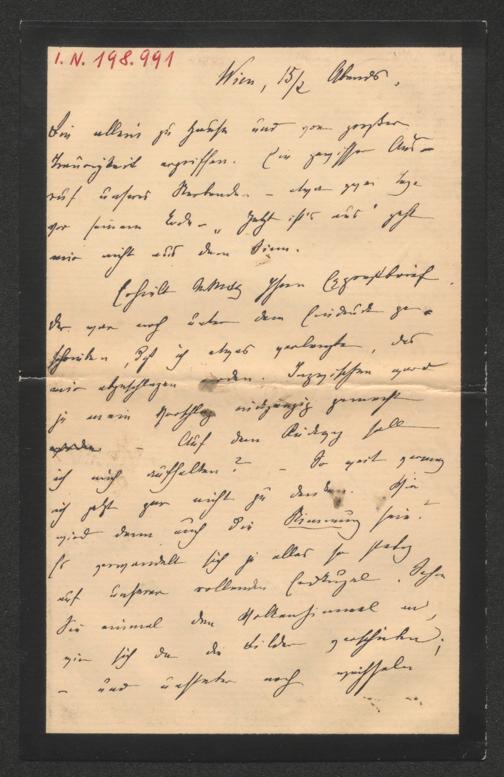 I. N. 198.991
Wien, 15/2 Abends.
Bin allein zu Hause und von großer
Traurigkeit ergriffen. Ein gewisser Aus-
ruf unseres Sterbenden – etwa zwei Tage
vor seinem Ende – „Jetzt ist's aus" geht
mir nicht aus dem Sinn.
Erhielt Ihren Expreßbrief.
Der war noch unter dem Eindruck ge-
schrieben, daß ich etwas verlangte, das
mir abgeschlagen worden. Inzwischen ward
ja mein Vorschlag rückgängig gemacht
– Auf dem Rückweg soll
ich mich aufhalten? – So weit vermag
ich jetzt gar nicht zu denken. Wie
wird denn auch die Stimmung sein?
Es verwandelt sich ja alles so stetig
auf unserer rollenden Erdkugel. Sehen
Sie einmal den Wolkenhimmel an,
wie sich da die Bilder verschieben;
– und unsteter noch wechseln